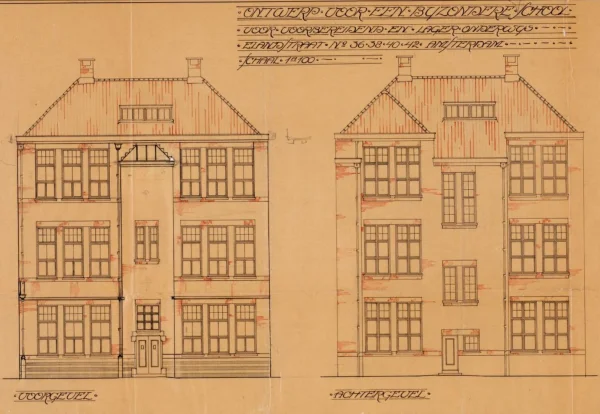 ONTWERP VOOR EEN BIJZONDERE SCHOOL
VOOR VOORBEREIDEND EN LAGER ONDERWIJS
ELANDSTRAAT Nº 36-38-40-42 AMSTERDAM
SCHAAL 1 à 100
VOORGEVEL
ACHTERGEVEL